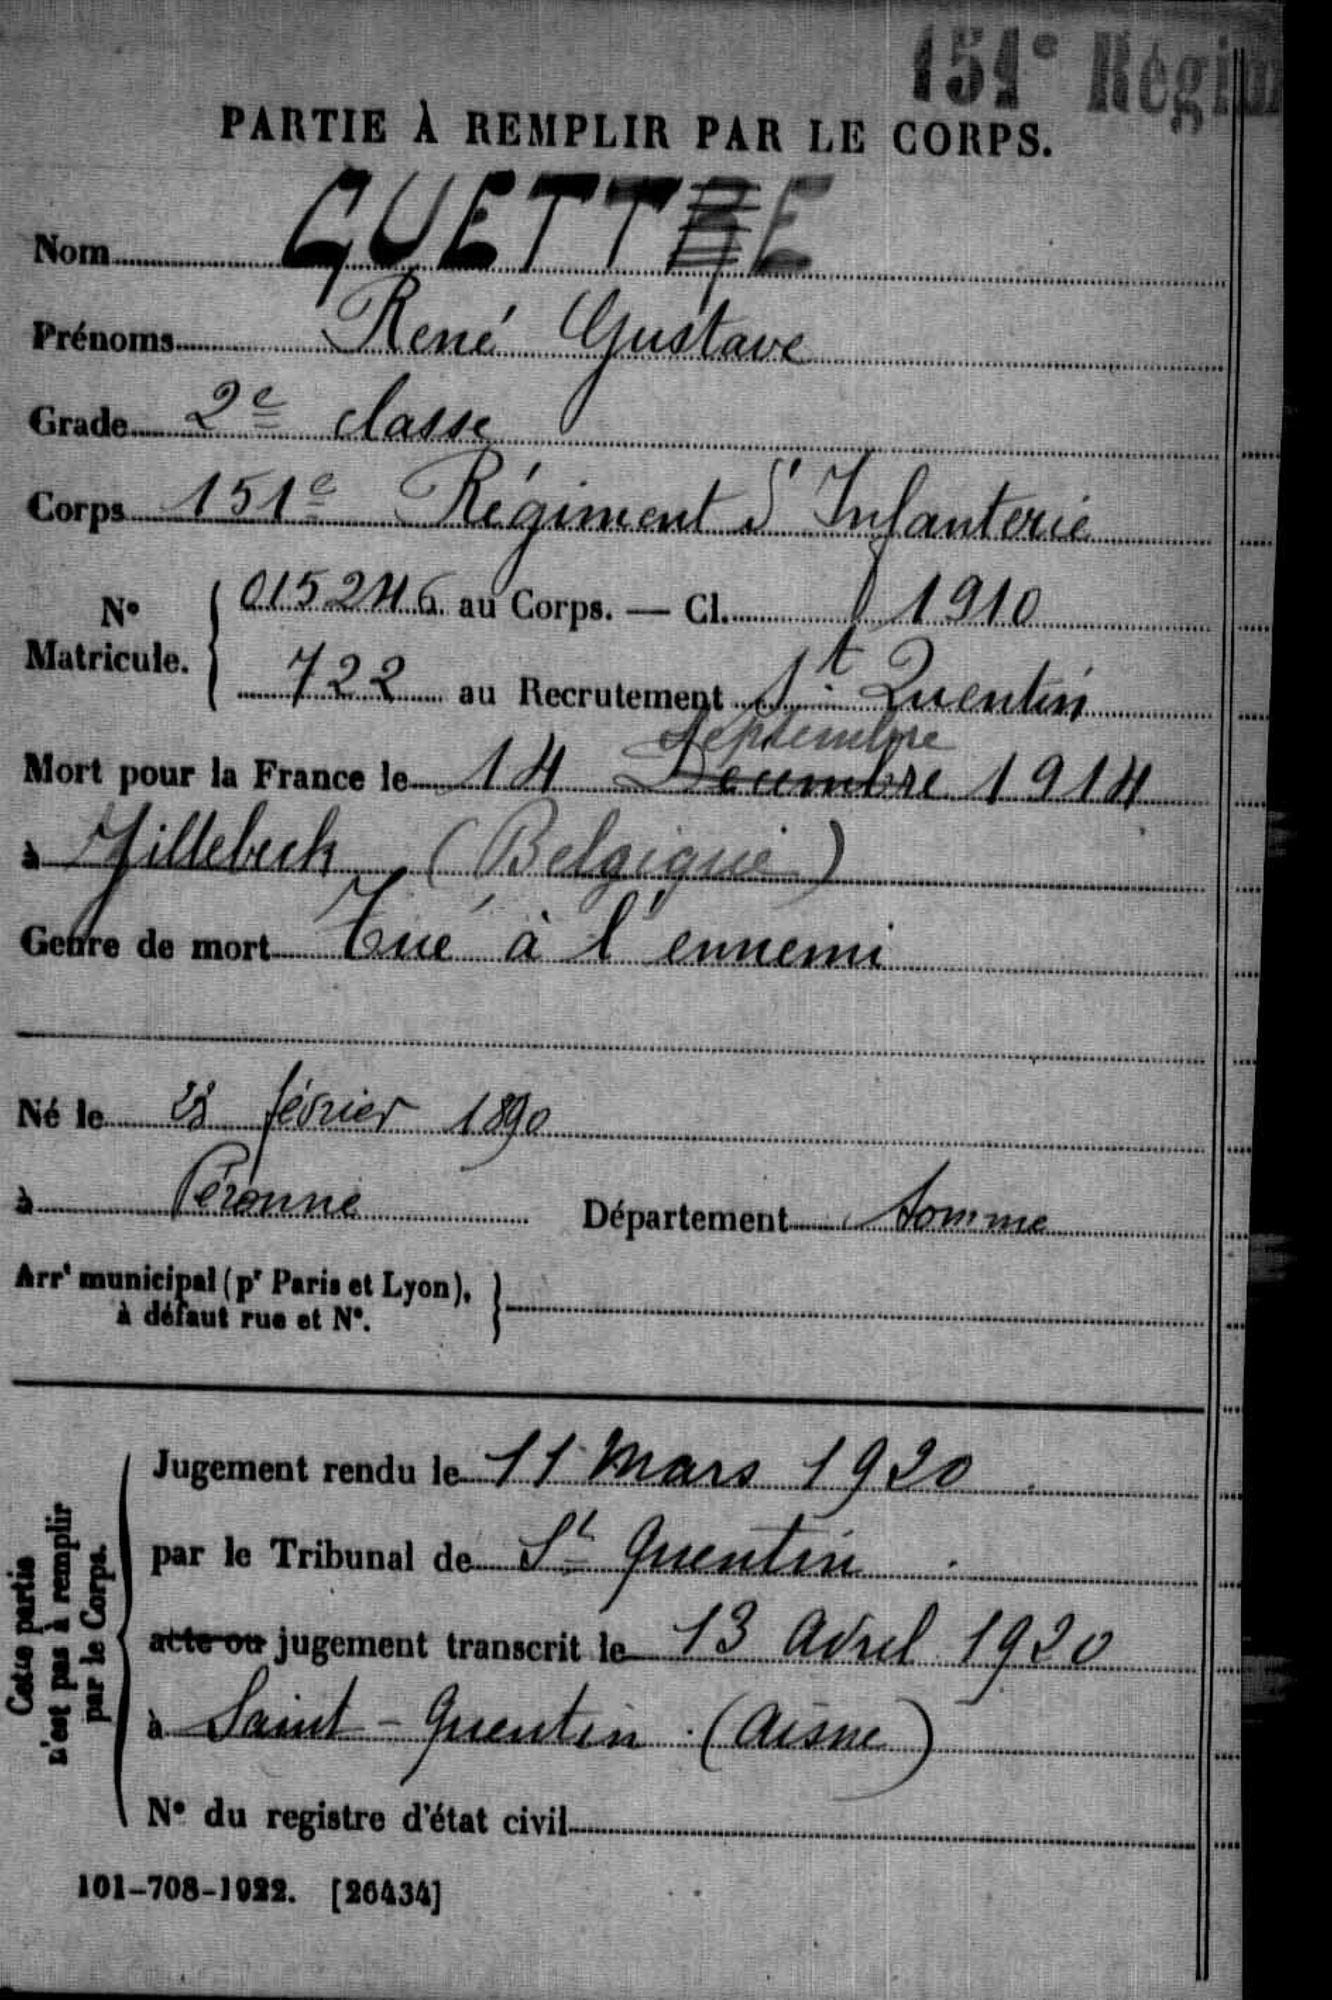 151e Régim
PARTIE À REMPLIR PAR LE CORPS.
Nom GUETTE
Prénoms René Gustave
Grade 2e classe
Corps 151e Régiment d'Infanterie
No Matricule. 015246 au Corps. — Cl. 1910
722 au Recrutement St Quentin
Septembre
Mort pour la France le 14 Decembre 1914
à Zillebeck (Belgique)
Genre de mort Tué à l'ennemi
Né le février 1890
à Péronne Département Somme
Arrt municipal (pr Paris et Lyon),
à défaut rue et No.
Cette partie
n'est pas à remplir
par le Corps.
Jugement rendu le 11 Mars 1920
par le Tribunal de St Quentin
acte ou jugement transcrit le 13 Avril 1920
à Saint-Quentin (Aisne)
No du registre d'état civil
101-708-1922. [26434]